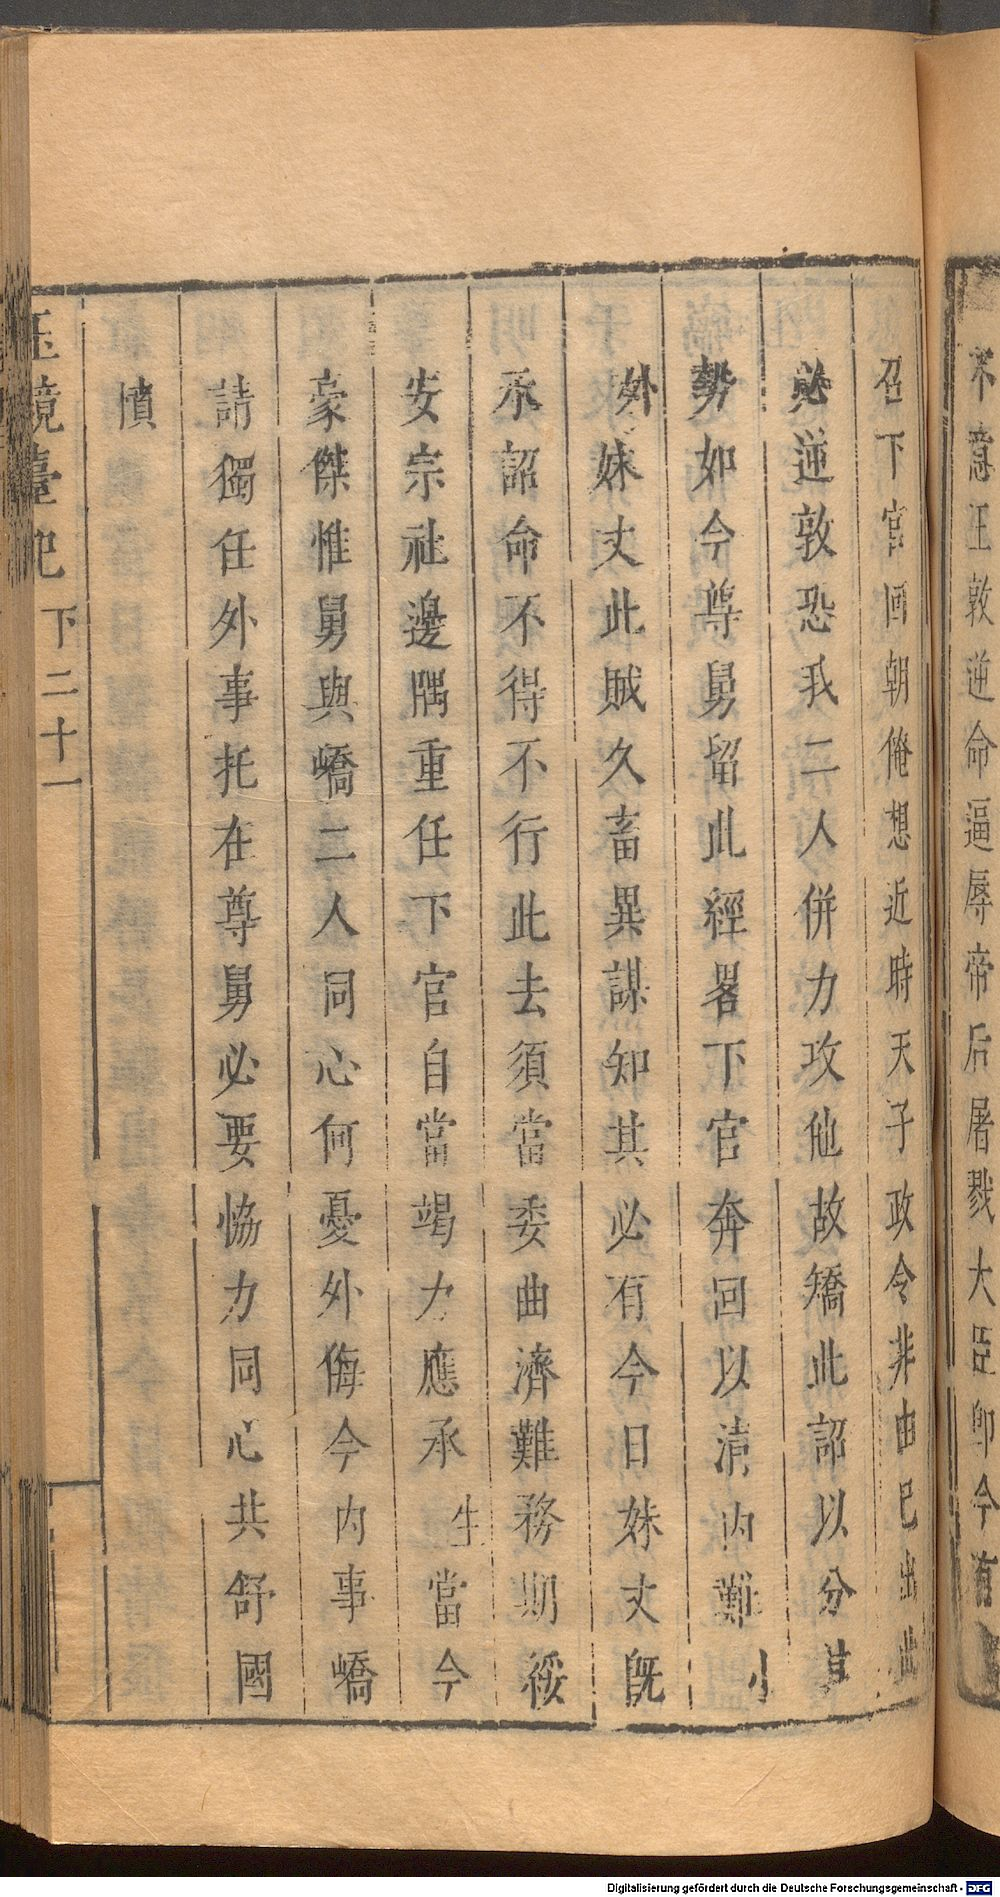 不意王敦逆命逼辱帝后屠戮大臣卽今有
召下官回朝俺想近時天子政令非由巳出此
必逆敦恐我二人併力攻他故矯此詔以分其
勢如今尊舅留此經畧下官奔回以清內難 小
外 妹丈此賊久畜異謀知其必有今日妹丈旣
承詔命不得不行此去須當委曲濟難務期綏
安宗社邊隅重任下官自當竭力應承 生 當今
豪傑惟舅與嶠二人同心何憂外侮今內事嶠
請獨任外事托在尊舅必要恊力同心共舒國
憤
玉鏡臺記 下 二十一
Digitalisierung gefördert durch die Deutsche Forschungsgemeinschaft - DFG